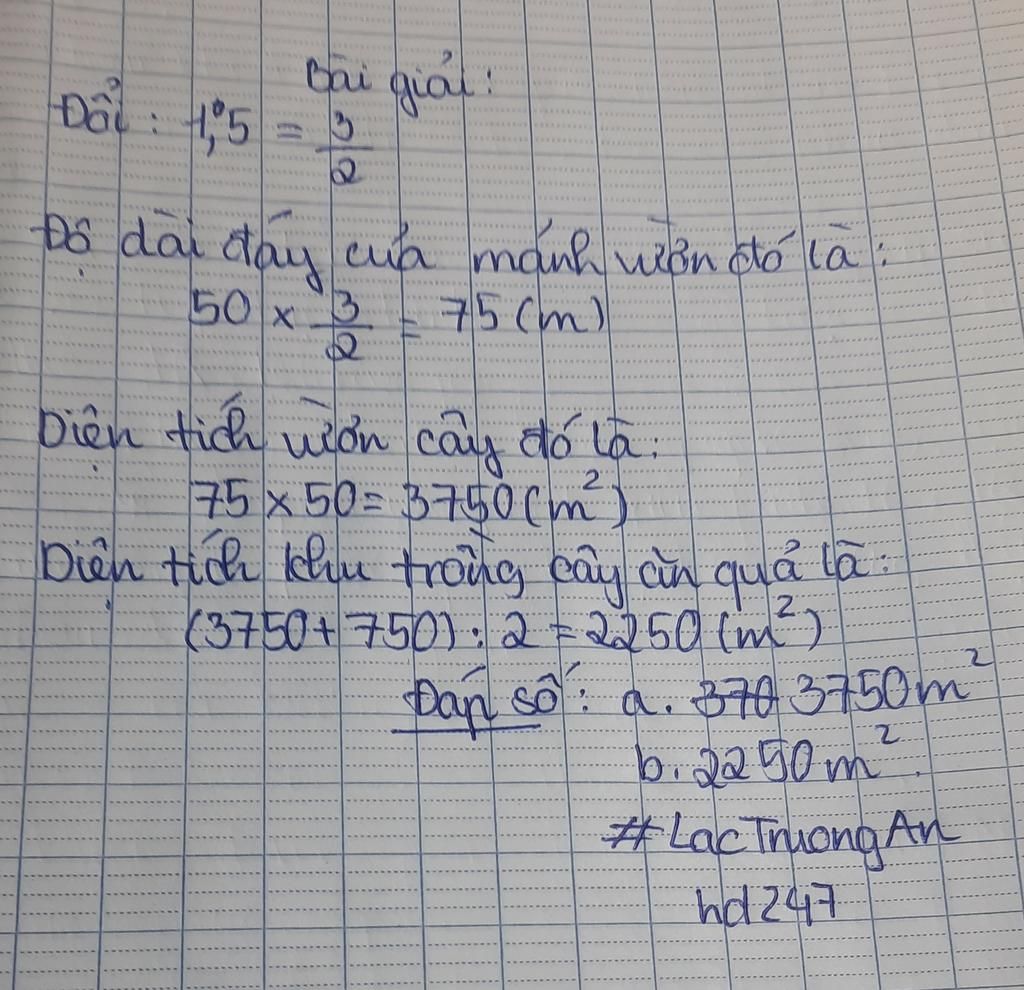 Bài giải:
Đổi: 1,5 = 3/2
Độ dài đáy của mảnh vườn đó là:
50 × 3/2 = 75 (m)
Diện tích vườn cây đó là:
75 × 50 = 3750 (m²)
Diện tích khu trồng cây ăn quả là:
(3750 + 750) : 2 = 2250 (m²)
Đáp số: a. 370 3750m²
b. 2250m².
#LacTruongAn
hd247